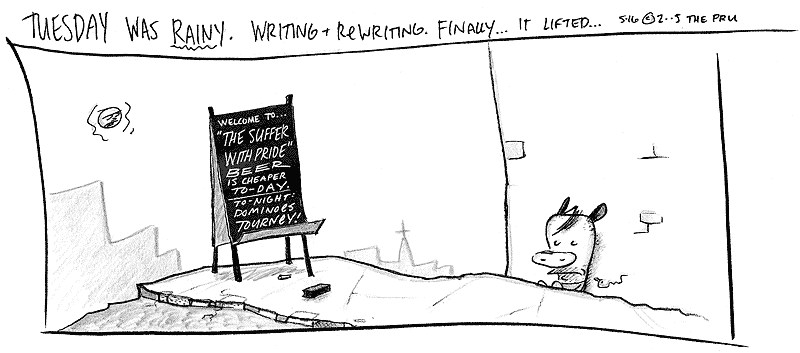 TUESDAY WAS RAINY. WRITING + REWRITING. FINALLY... IT LIFTED... 5·16 © 2··5 THE PRU
WELCOME TO...
"THE SUFFER
WITH PRIDE"
BEER
IS CHEAPER
TO-DAY.
TO-NIGHT:
DOMINOES
TOURNEY!